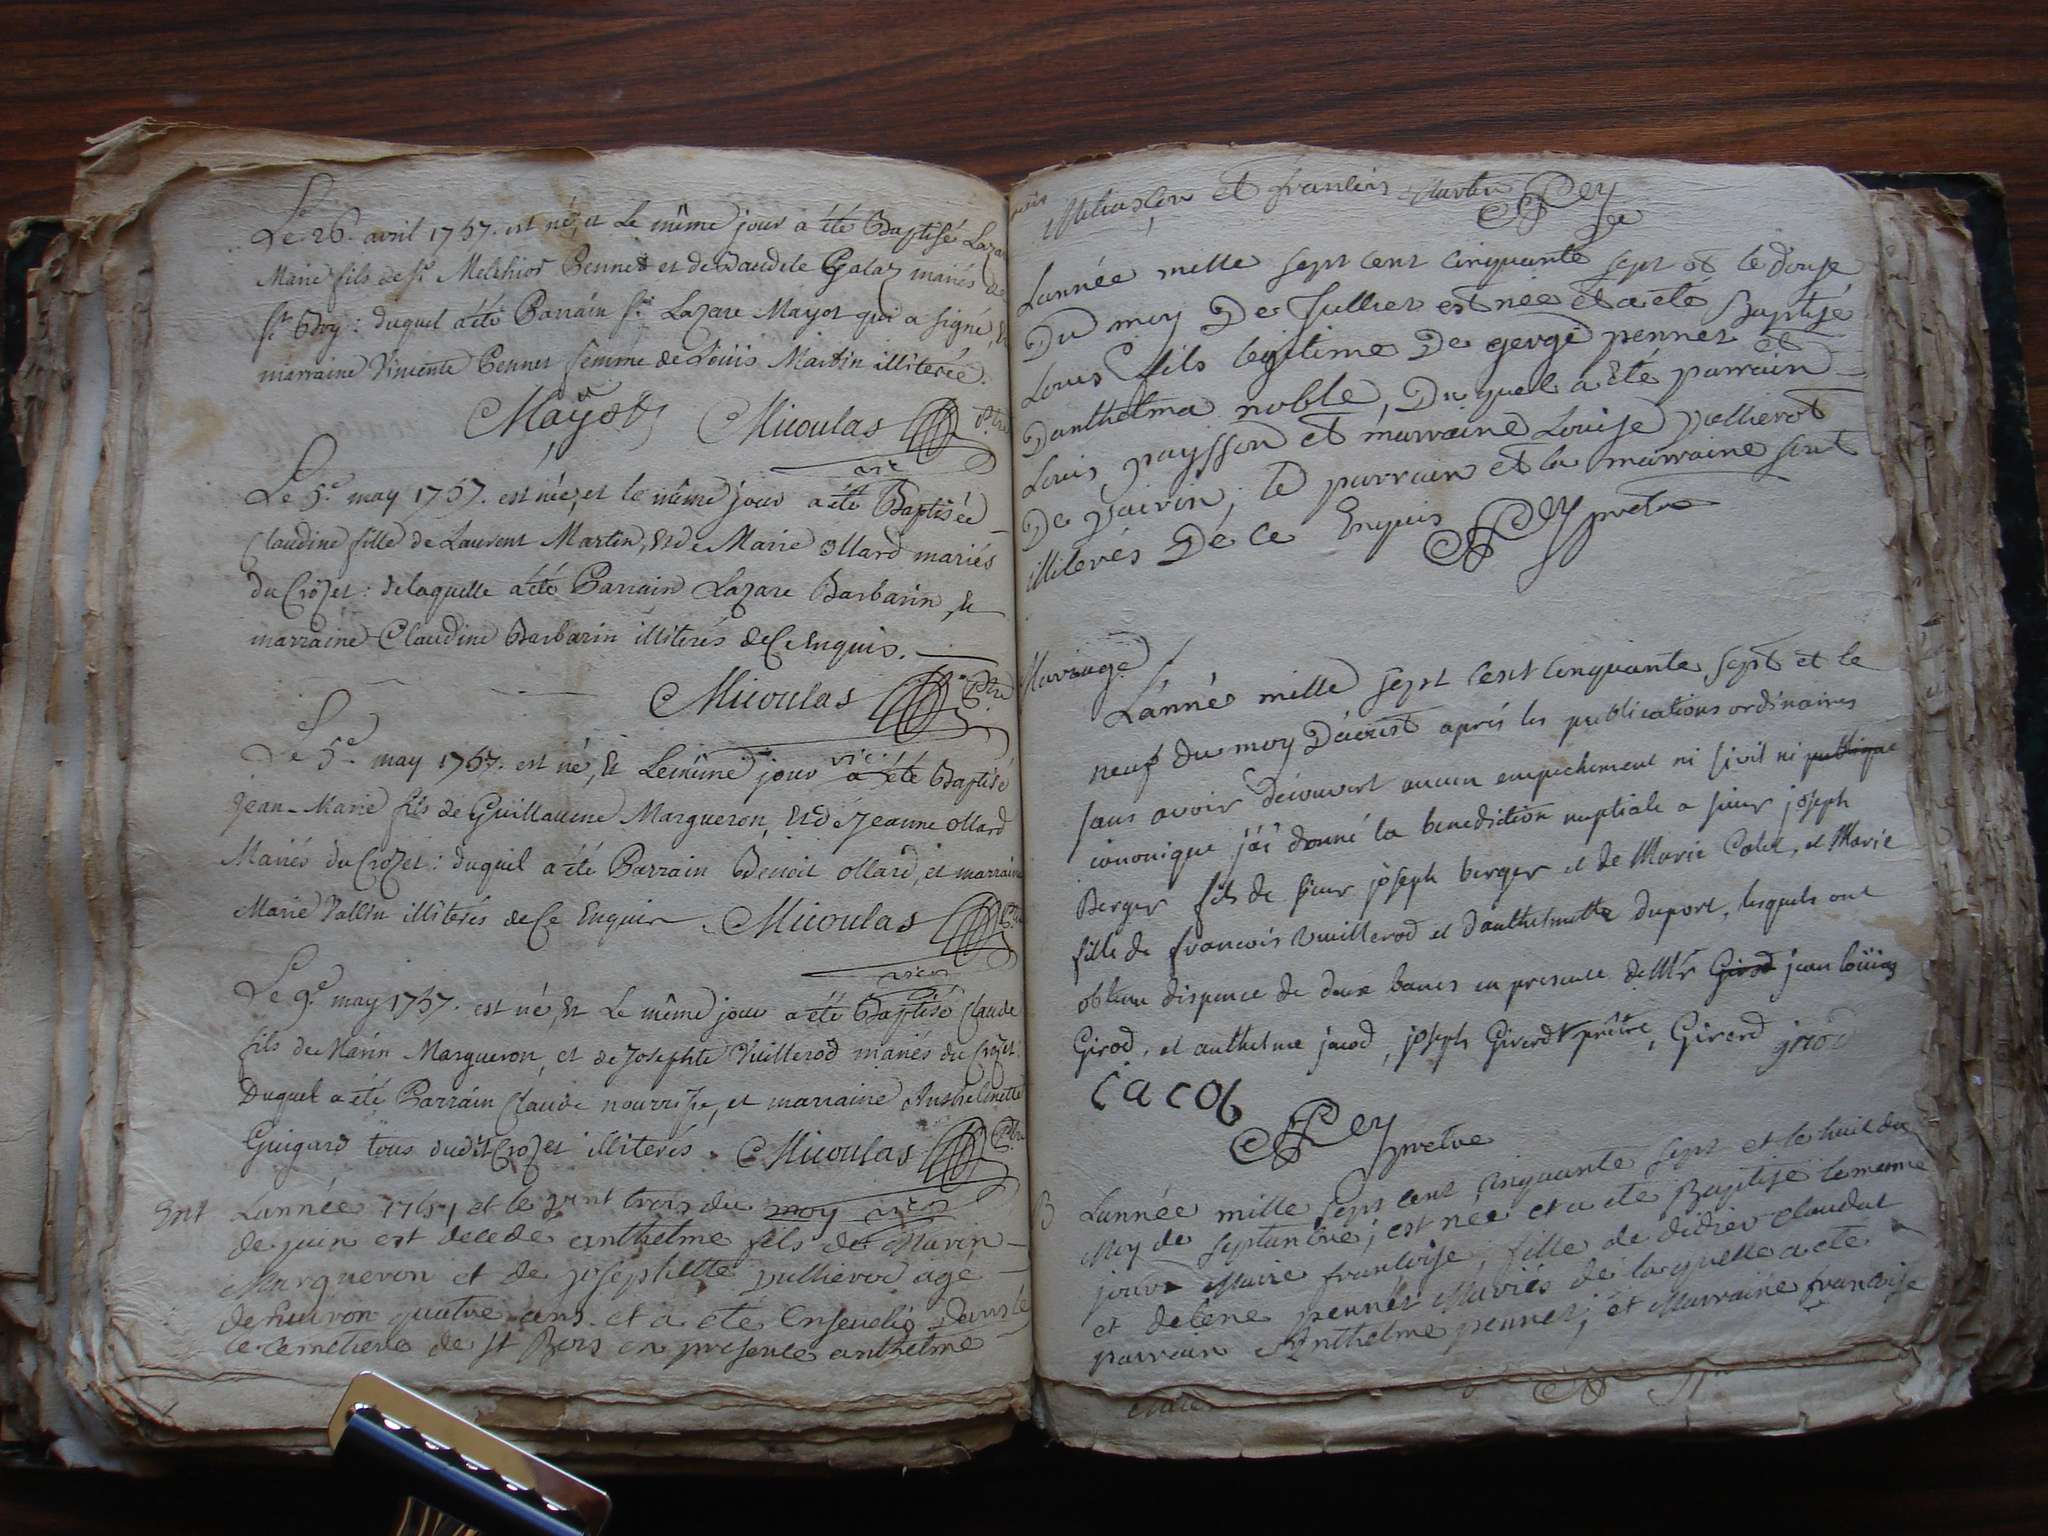 Le 26. avril 1757. est né, et Le même jour a été Baptisé Lazare
Marie fils de Sr. Melchior Pennet et de Baudele Galay mariés de
St. Boy: duquel a été Parrain Sr. Lazare Mayot qui a signé, Et
marraine Vincente Pennet femme de Loüis Martin illiterée.
Mayot Micoulas Ptre
vic.
Le 5e. may 1757. est née, et le même jour a été Baptisée
Claudine fille de Laurent Martin, Et de Marie ollard mariés
du Crozet: delaquelle a été Parrain Lazare Barbarin, Et
marraine Claudine Barbarin illiterés de Ce Enquis.
Micoulas Ptre
vic.
Le 5e. may 1757. est né, Et Le même jour a été Baptisé
Jean-Marie fils de Guillaume Margueron, Et de Jeanne ollard
Mariés du Crozet: duquel a été Parrain Benoit ollard, et marraine
Marie Vallin illiterés de Ce Enquis Micoulas Ptre
vicr.
Le 9e. may 1757. est né, Et Le même jour a été Baptisé Claude
fils de Marin Margueron, et de Josephte Vuillerod mariés du Crozet
Duquel a été Parrain Claude nourrisse, et marraine Anthelmette
Guigard tous dudit Crozet illiterés. Micoulas Ptre
vicr.
Ent Lannée 1757, et le vint trois du moy
de juin est decede anthelme fils de Marin
Margueron et de josephette vullierod age
de Euiron quatre ans et a ete Enseueli Dans le
ce cemetiere de st Bois en presence anthelme
et francois Martin Rey
Lannée mille sept cent cinquante sept et le douse
Du moy De Jullier est née et a eté Baptisé
Louis fils legitime De george pennet et
Danthelma noble, Du quel a été parrain
Louis paysson et marraine Louise vullierot
De vairin, le parrain et la marraine sont
illiterés De ce Enquis Rey pretre
Mariage
L'anné mille sept cent cinquante sept et le
neuf du moy D'aoust aprés les publications ordinaires
sans avoir découvert aucun empechement ni sivil ni publique
cononique j'ai donné la benediction nuptiale a sieur joseph
Berger fils de sieur joseph berger et de Marie Colet, et Marie
fille de francois Vuillerod et danthelmette duport, lesquels ont
obtenu dispence de deux bancs en presence de Mr Girod jean loüis
Girod, et anthelme jacod, joseph Girerd prêtre, Girerd girod
iacob
Rey pretre
B Lannée mille sept cent cinquante sept et le huit du
Moy de septembre, est née et a ete Baptise le meme
jour Marie francoise, fille de didier claudat
et delene pennet Mariés de laquelle a ete
parrain Anthelme pennet, et Marraine francoise